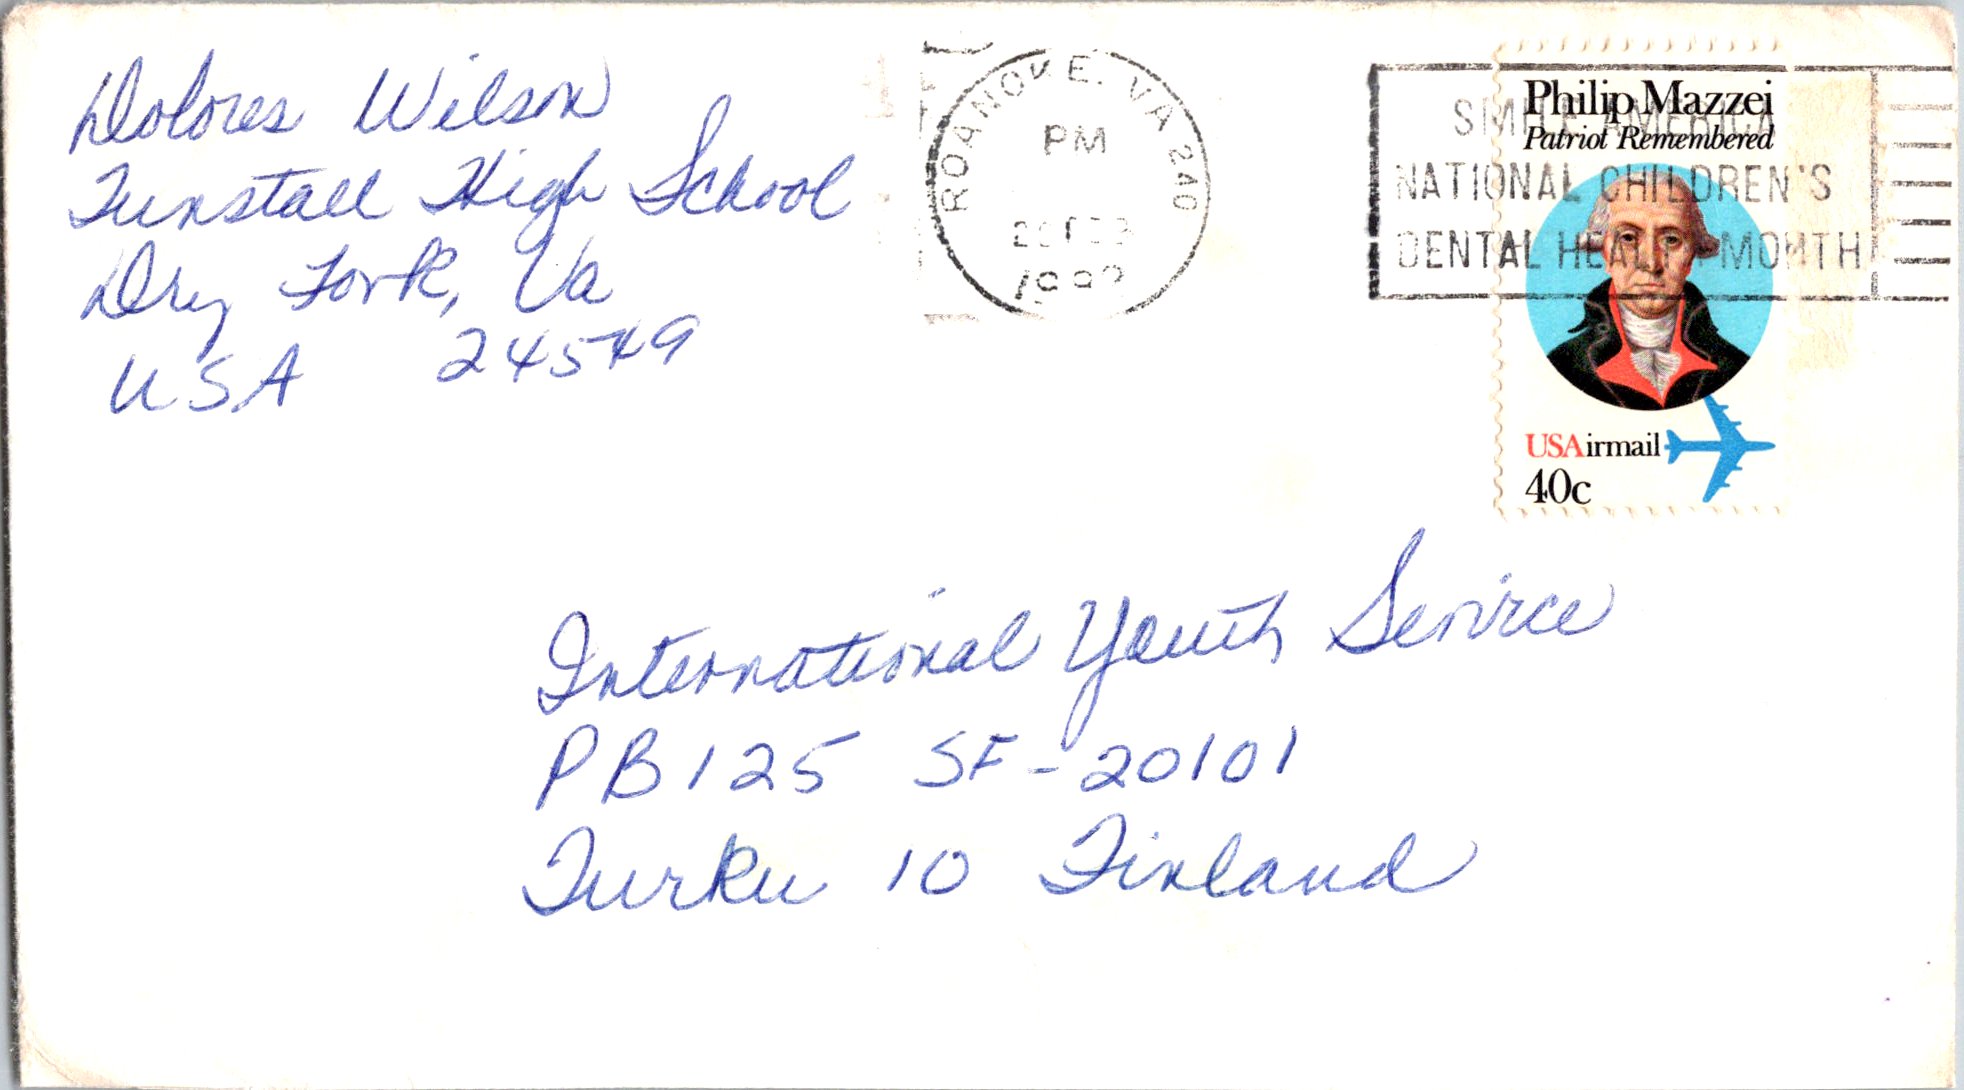 Dolores Wilson
Tunstall High School
Dry Fork, Va
USA 24549
ROANOKE, VA 240
PM
1982
SMILE AMERICA
NATIONAL CHILDREN'S
DENTAL HEALTH MONTH
Philip Mazzei
Patriot Remembered
USAirmail
40c
International Youth Service
PB 125 SF-20101
Turku 10 Finland